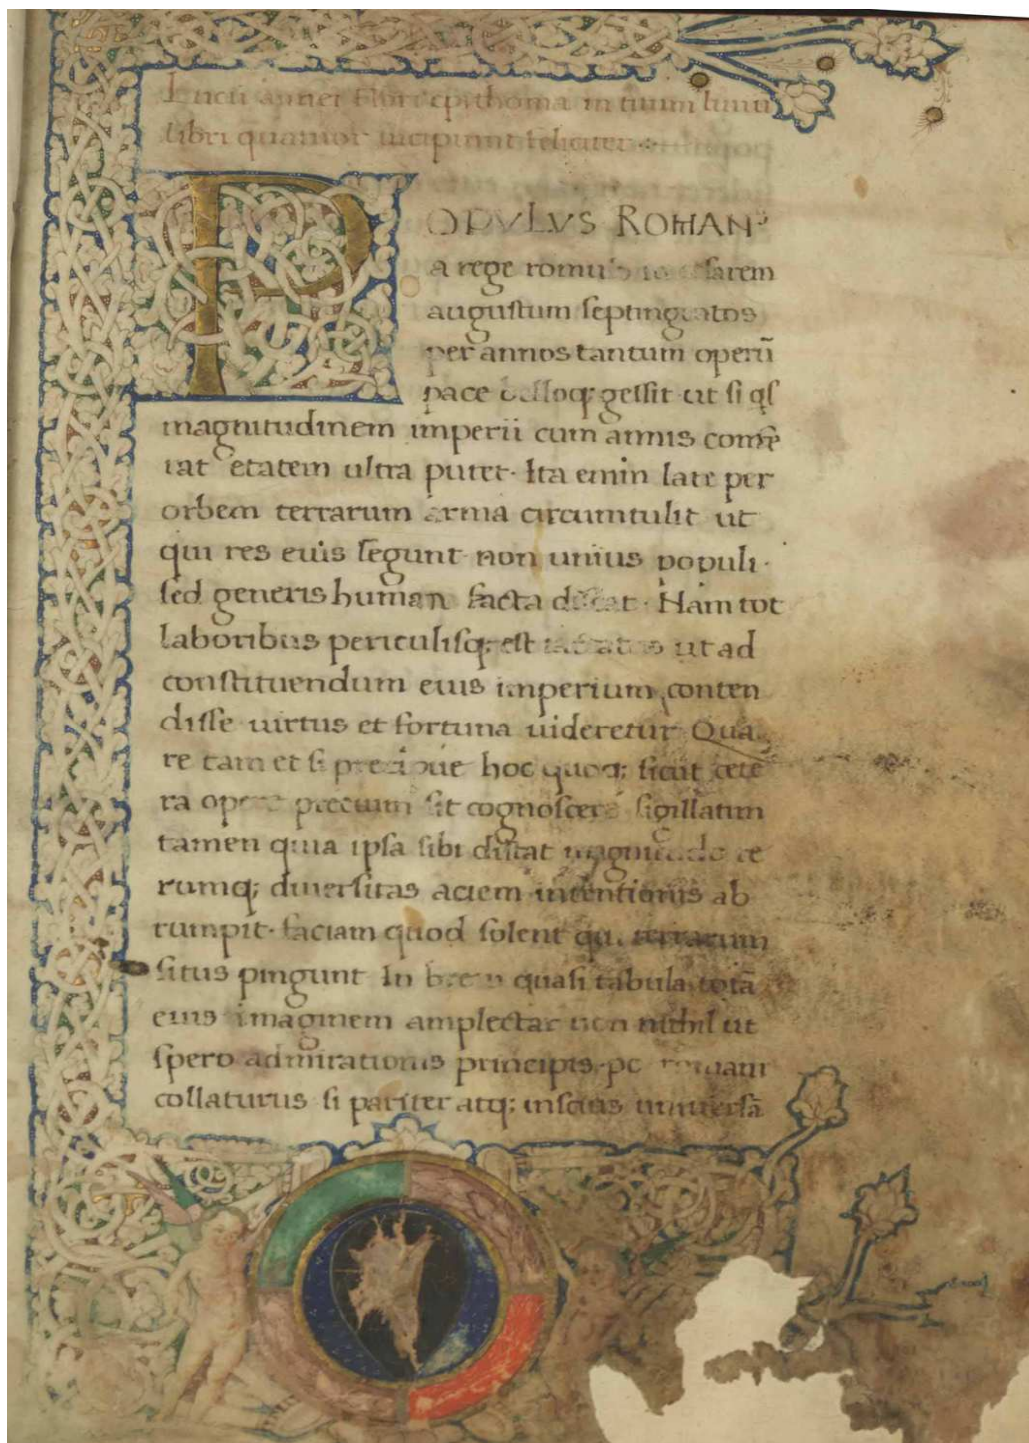 Lucii annei flori epithoma in titum liuii
libri quatuor incipiunt feliciter
POPVLVS ROMANꝰ
a rege romulo sarem
augustum septingentos
per annos tantum operū
pace belloq; gessit ut si qs
magnitudinem imperii cum annis confe
rat etatem ultra putet. Ita enim late per
orbem terrarum arma circumtulit ut
qui res eius legunt non unius populi.
sed generis humani facta discat. Nam tot
laboribus periculisq; est iactatus ut ad
constituendum eius imperium conten
disse uirtus et fortuna uideretur Qua
re tam et si precipue hoc quoq; sicut cete
ra opere precium sit cognoscere sigillatim
tamen quia ipsa sibi distat magnitudo re
rumq; diuersitas aciem intentionis ab
rumpit. faciam quod solent qui terrarum
situs pingunt In breui quasi tabula totā
eius imaginem amplectar non nihil ut
spero admirationis principis. po romani
collaturus si pariter atq; insimis uniuersā